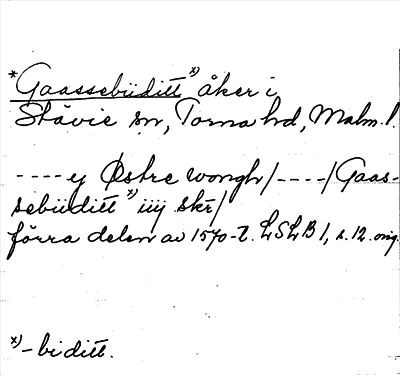 *Gaassebüditt x) åker i
Stävie sn, Torna hd, Malm. l.
----ey Østre wongh/----/Gaas-
sebüditt x) iiij skr/
förra delen av 1570-t. LSLB 1, s. 12. orig.
x) -biditt.